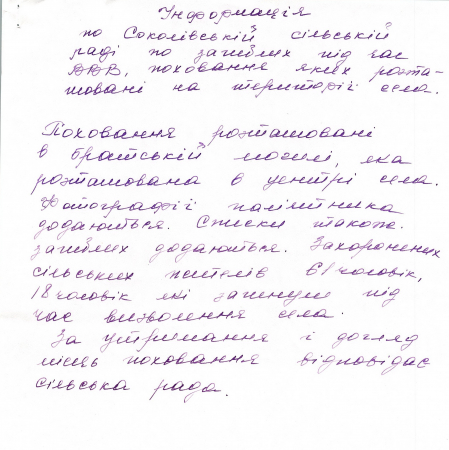 Інформація
по Соколівській сільській
раді по загиблих під час
ВВВ, поховання яких розта-
шовані на території села.
Поховання розташовані
в братській могилі, яка
розташована в центрі села.
Фотографії памітника
додаються. Списки також
загиблих додаються. Захоронених
сільських жителів 61 чоловік,
18 чоловік які загинули під
час визволення села.
За утримання і догляд
місць поховання відповідає
сільська рада.